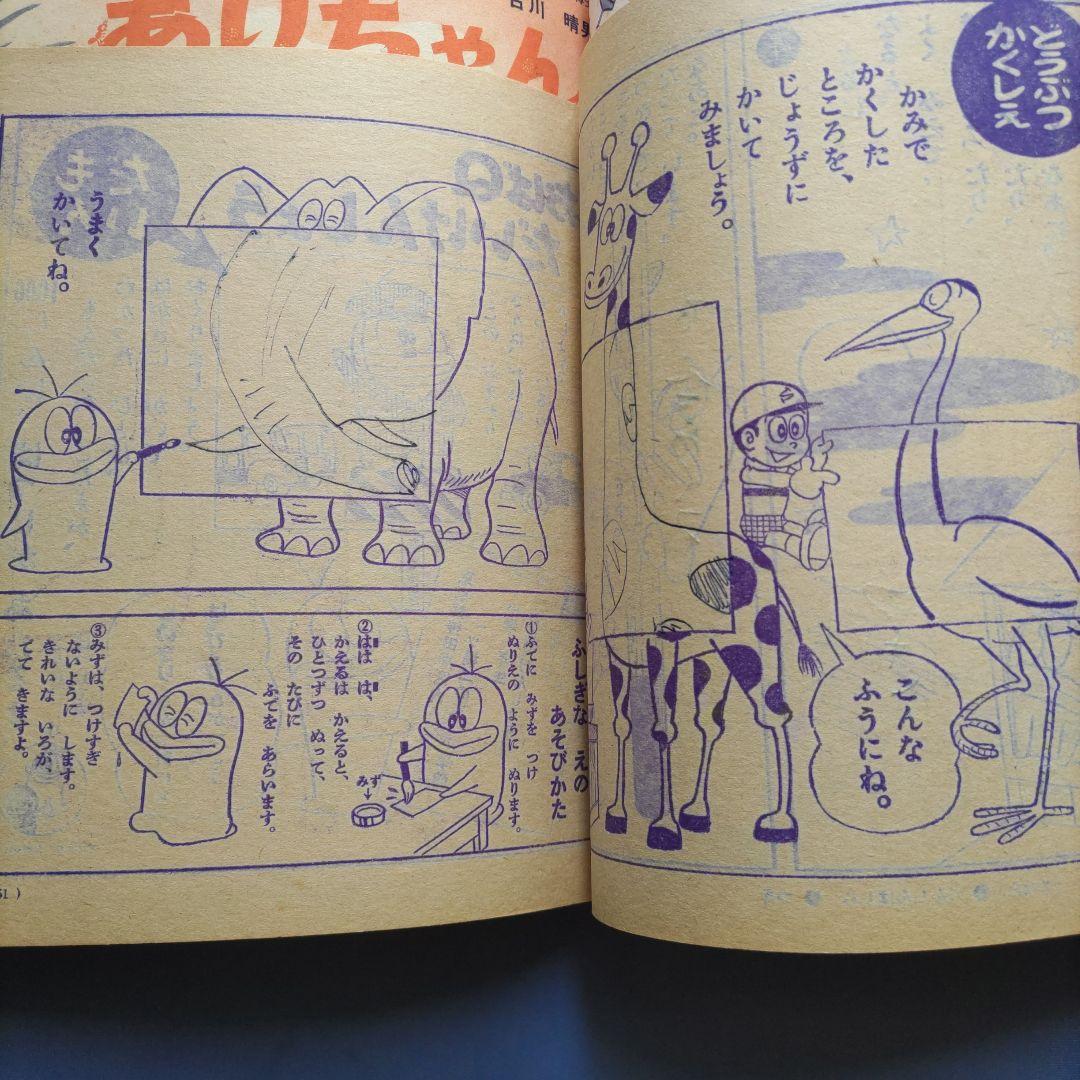 ありちゃん
吉川 晴男
どうぶつ
かくしえ
かみで
かくした
ところを、
じょうずに
かいて
みましょう。
こんな
ふうにね。
うまく
かいてね。
ふしぎな えの
あそびかた
①ふでに みずを つけ
ぬりえの ように ぬります。
②はは は、
かえるは かえると、
ひとつずつ ぬって、
その たびに
ふでを あらいます。
みず
③みずは、つけすぎ
ないように します。
きれいな いろが、
でて きますよ。